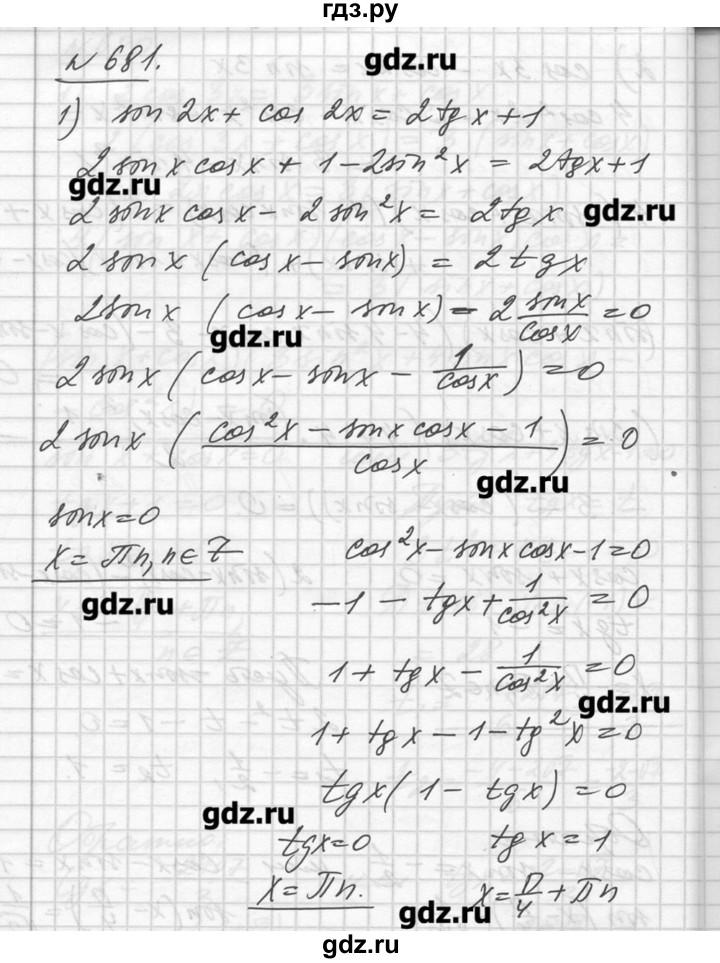 гдз.ру
gdz.ru
№ 681.
1) sin 2x + cos 2x = 2tg x + 1
2 sin x cos x + 1 - 2sin²x = 2tg x + 1
gdz.ru
2 sin x cos x - 2 sin²x = 2tg x
gdz.ru
2 sin x (cos x - sin x) = 2tg x
2 sin x (cos x - sin x) - 2 sin x / cos x = 0
gdz.ru
2 sin x (cos x - sin x - 1 / cos x) = 0
2 sin x ((cos²x - sin x cos x - 1) / cos x) = 0
gdz.ru
sin x = 0
x = Πn, n ∈ Z
cos²x - sin x cos x - 1 = 0
gdz.ru
-1 - tg x + 1 / cos²x = 0
1 + tg x - 1 / cos²x = 0
gdz.ru
1 + tg x - 1 - tg²x = 0
tg x (1 - tg x) = 0
gdz.ru
tg x = 0
tg x = 1
x = Πn.
x = Π/4 + Πn
gdz.ru
gdz.ru